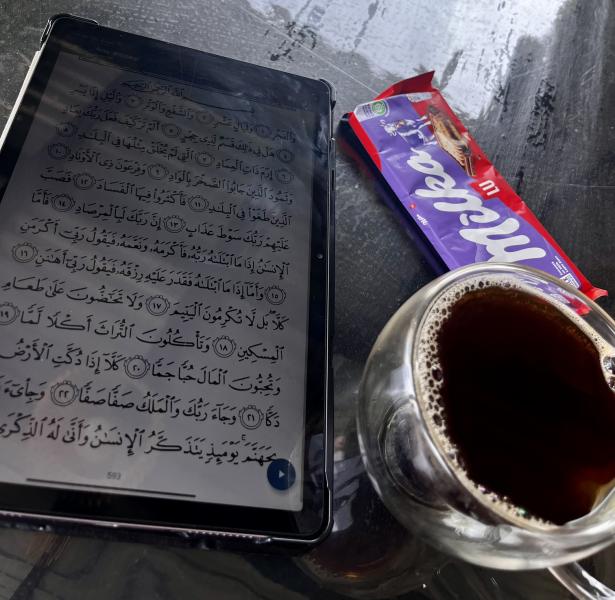 بِسْمِ ٱللَّهِ ٱلرَّحْمَٰنِ ٱلرَّحِيمِ
وَٱلْفَجْرِ ١ وَلَيَالٍ عَشْرٍ ٢ وَٱلشَّفْعِ وَٱلْوَتْرِ ٣ وَٱلَّيْلِ إِذَا يَسْرِ
٤ هَلْ فِى ذَٰلِكَ قَسَمٌ لِّذِى حِجْرٍ ٥ أَلَمْ تَرَ كَيْفَ فَعَلَ رَبُّكَ بِعَادٍ
٦ إِرَمَ ذَاتِ ٱلْعِمَادِ ٧ ٱلَّتِى لَمْ يُخْلَقْ مِثْلُهَا فِى ٱلْبِلَٰدِ ٨
وَثَمُودَ ٱلَّذِينَ جَابُوا۟ ٱلصَّخْرَ بِٱلْوَادِ ٩ وَفِرْعَوْنَ ذِى ٱلْأَوْتَادِ ١٠
ٱلَّذِينَ طَغَوْا۟ فِى ٱلْبِلَٰدِ ١١ فَأَكْثَرُوا۟ فِيهَا ٱلْفَسَادَ ١٢ فَصَبَّ
عَلَيْهِمْ رَبُّكَ سَوْطَ عَذَابٍ ١٣ إِنَّ رَبَّكَ لَبِٱلْمِرْصَادِ ١٤ فَأَمَّا
ٱلْإِنسَٰنُ إِذَا مَا ٱبْتَلَىٰهُ رَبُّهُۥ فَأَكْرَمَهُۥ وَنَعَّمَهُۥ فَيَقُولُ رَبِّىٓ أَكْرَمَنِ
١٥ وَأَمَّآ إِذَا مَا ٱبْتَلَىٰهُ فَقَدَرَ عَلَيْهِ رِزْقَهُۥ فَيَقُولُ رَبِّىٓ أَهَٰنَنِ ١٦
كَلَّا ۖ بَل لَّا تُكْرِمُونَ ٱلْيَتِيمَ ١٧ وَلَا تَحَٰٓضُّونَ عَلَىٰ طَعَامِ
ٱلْمِسْكِينِ ١٨ وَتَأْكُلُونَ ٱلتُّرَاثَ أَكْلًا لَّمًّا ١٩
وَتُحِبُّونَ ٱلْمَالَ حُبًّا جَمًّا ٢٠ كَلَّآ إِذَا دُكَّتِ ٱلْأَرْضُ
دَكًّا ٢١ وَجَآءَ رَبُّكَ وَٱلْمَلَكُ صَفًّا صَفًّا ٢٢ وَجِا۟ىٓءَ
بِجَهَنَّمَ ۚ يَوْمَئِذٍ يَتَذَكَّرُ ٱلْإِنسَٰنُ وَأَنَّىٰ لَهُ ٱلذِّكْرَىٰ
593
Milka
LU